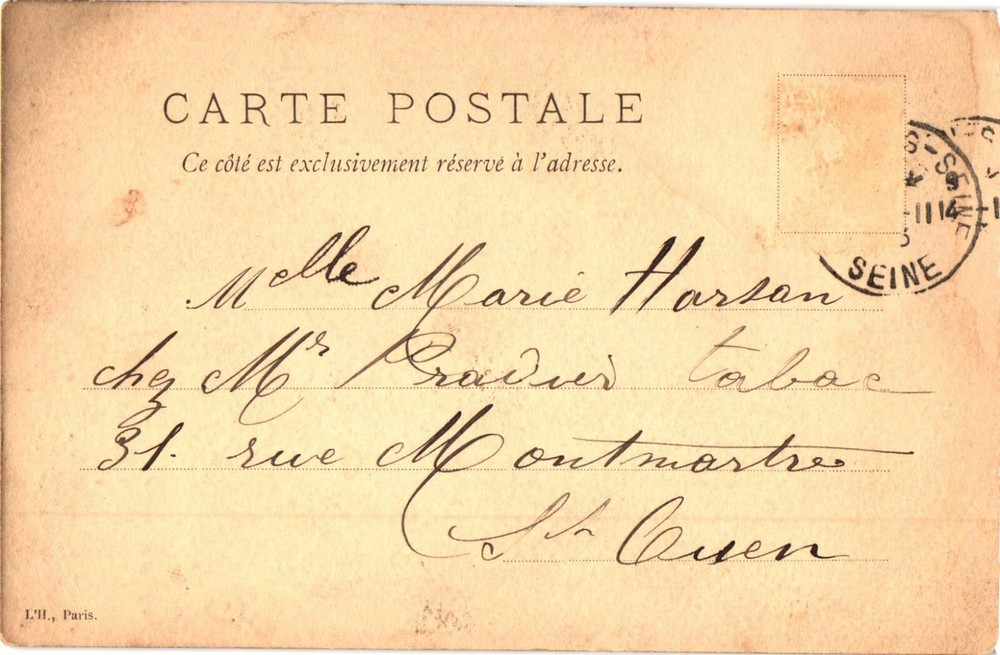 CARTE POSTALE
Ce côté est exclusivement réservé à l'adresse.
S-SEINE
9
-11 14
SEINE
Melle Marie Harsan
chez Mr Pradier tabac
31. rue Montmartre
St Ouen
L'H., Paris.